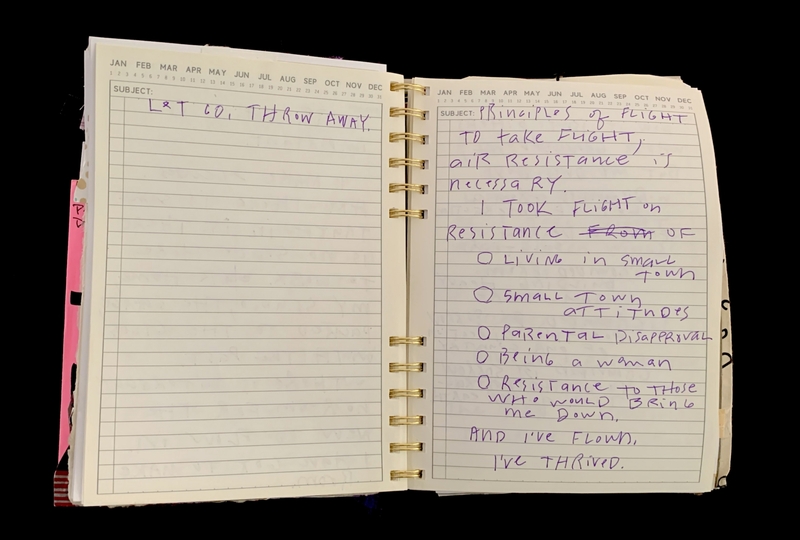 JAN FEB MAR APR MAY JUN JUL AUG SEP OCT NOV DEC
1 2 3 4 5 6 7 8 9 10 11 12 13 14 15 16 17 18 19 20 21 22 23 24 25 26 27 28 29 30 31
SUBJECT:
LET GO, THROW AWAY.
JAN FEB MAR APR MAY JUN JUL AUG SEP OCT NOV DEC
1 2 3 4 5 6 7 8 9 10 11 12 13 14 15 16 17 18 19 20 21 22 23 24 25 26 27 28 29 30 31
SUBJECT: PRinciPLES of FLIGHT
TO take FLIGHT,
aiR Resistance is
necessaRY.
I TOOK FLIGHT on
Resistance FROM OF
O LIVING in small
town
O small Town
aTTiTuDes
O PaRenTaL DisaPPROVaL
O Being a woman
O Resistance to THOSE
WHO WOULD BRinG
me Down.
AND I'VE FLOWN,
I'VE THRIVED.